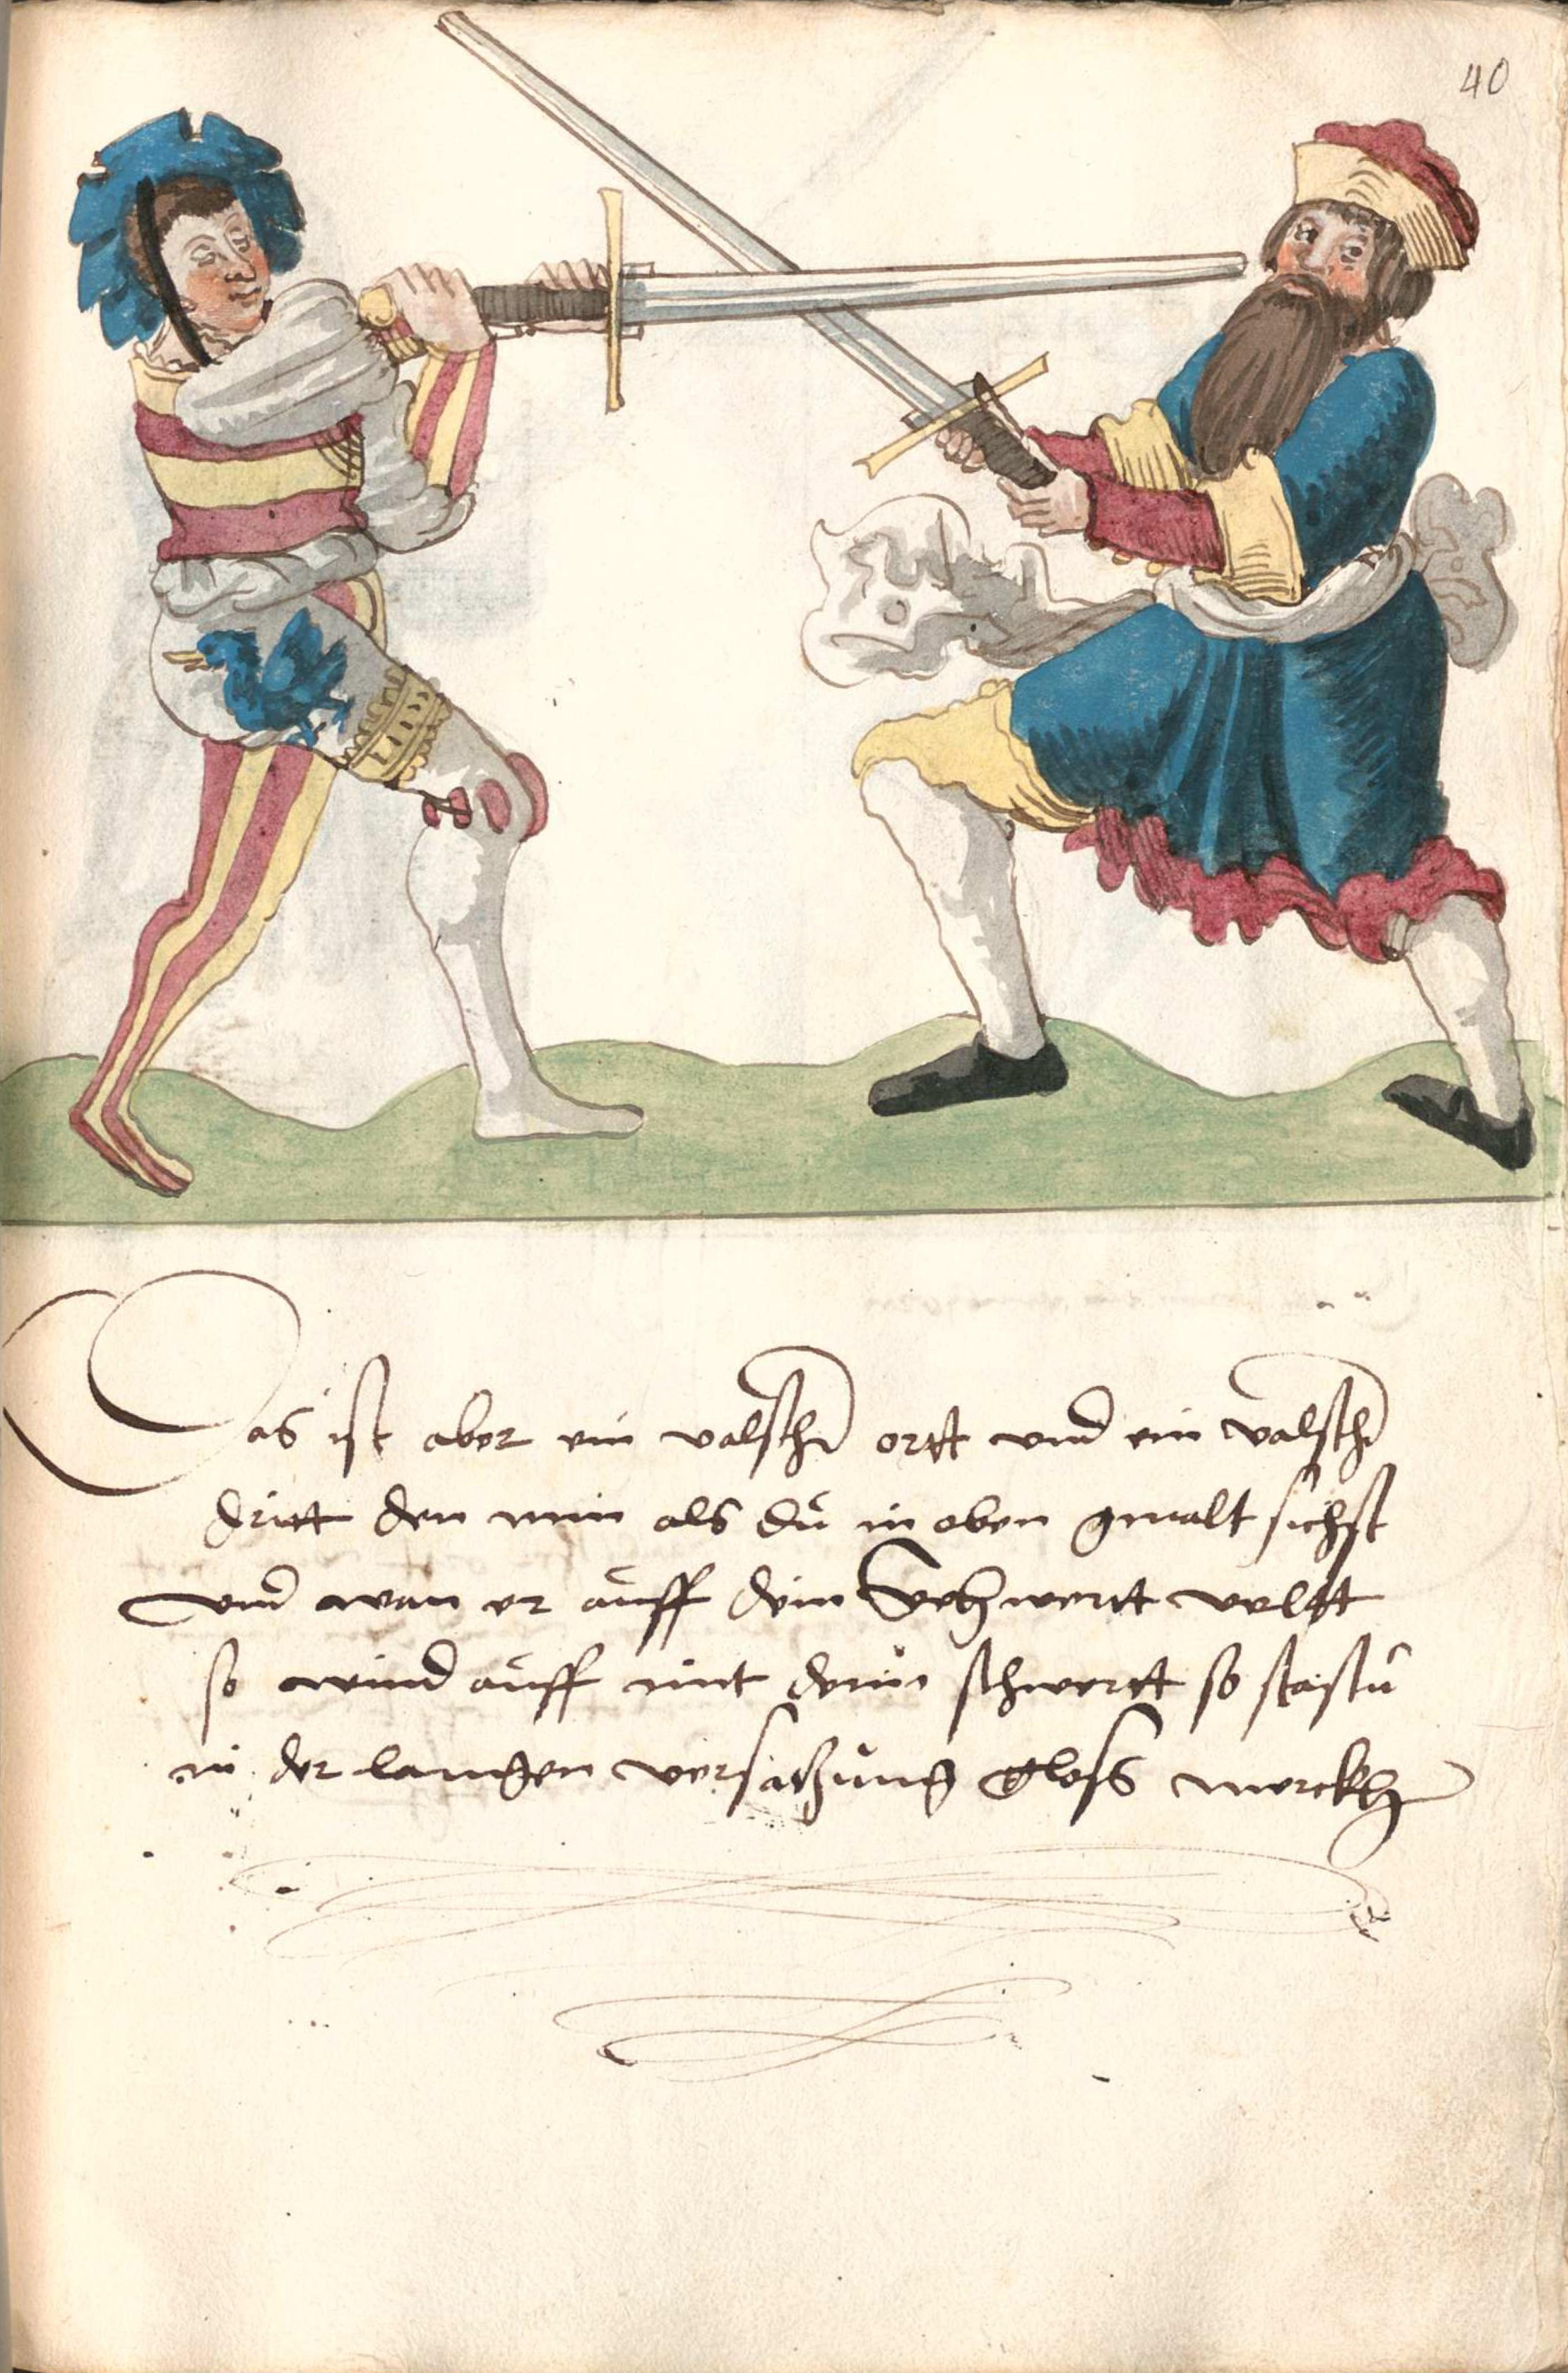 40
Das ist aber ein valscher ortt vnnd ein valscher
dritt den nim als du in oben gmalt sichst
vnnd wan er auff dein Schwertt velltt
so wind auff mit deim schwertt so stastu
in der langen versatzung gloss merckh